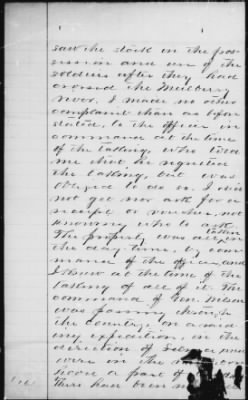 saw the stock in the pos-
session and use of the
soldiers after they had
crossed the Mulberry
river. I made no other
complaint than as before
stated, to the officer in
command at the time
of the taking, who told
me that he regretted
the taking, but was
obliged to do so. I did
not get nor ask for a
receipt or voucher, not
knowing who to ask.
The property was all taken in
the day time, by com-
mand of the officer, and
I knew at the time of the
taking of all of it. The
command of Gen. Wilson
was passing through
the country on a raid
ing expedition, in the
direction of Selma and
were in the
a part of
There had been